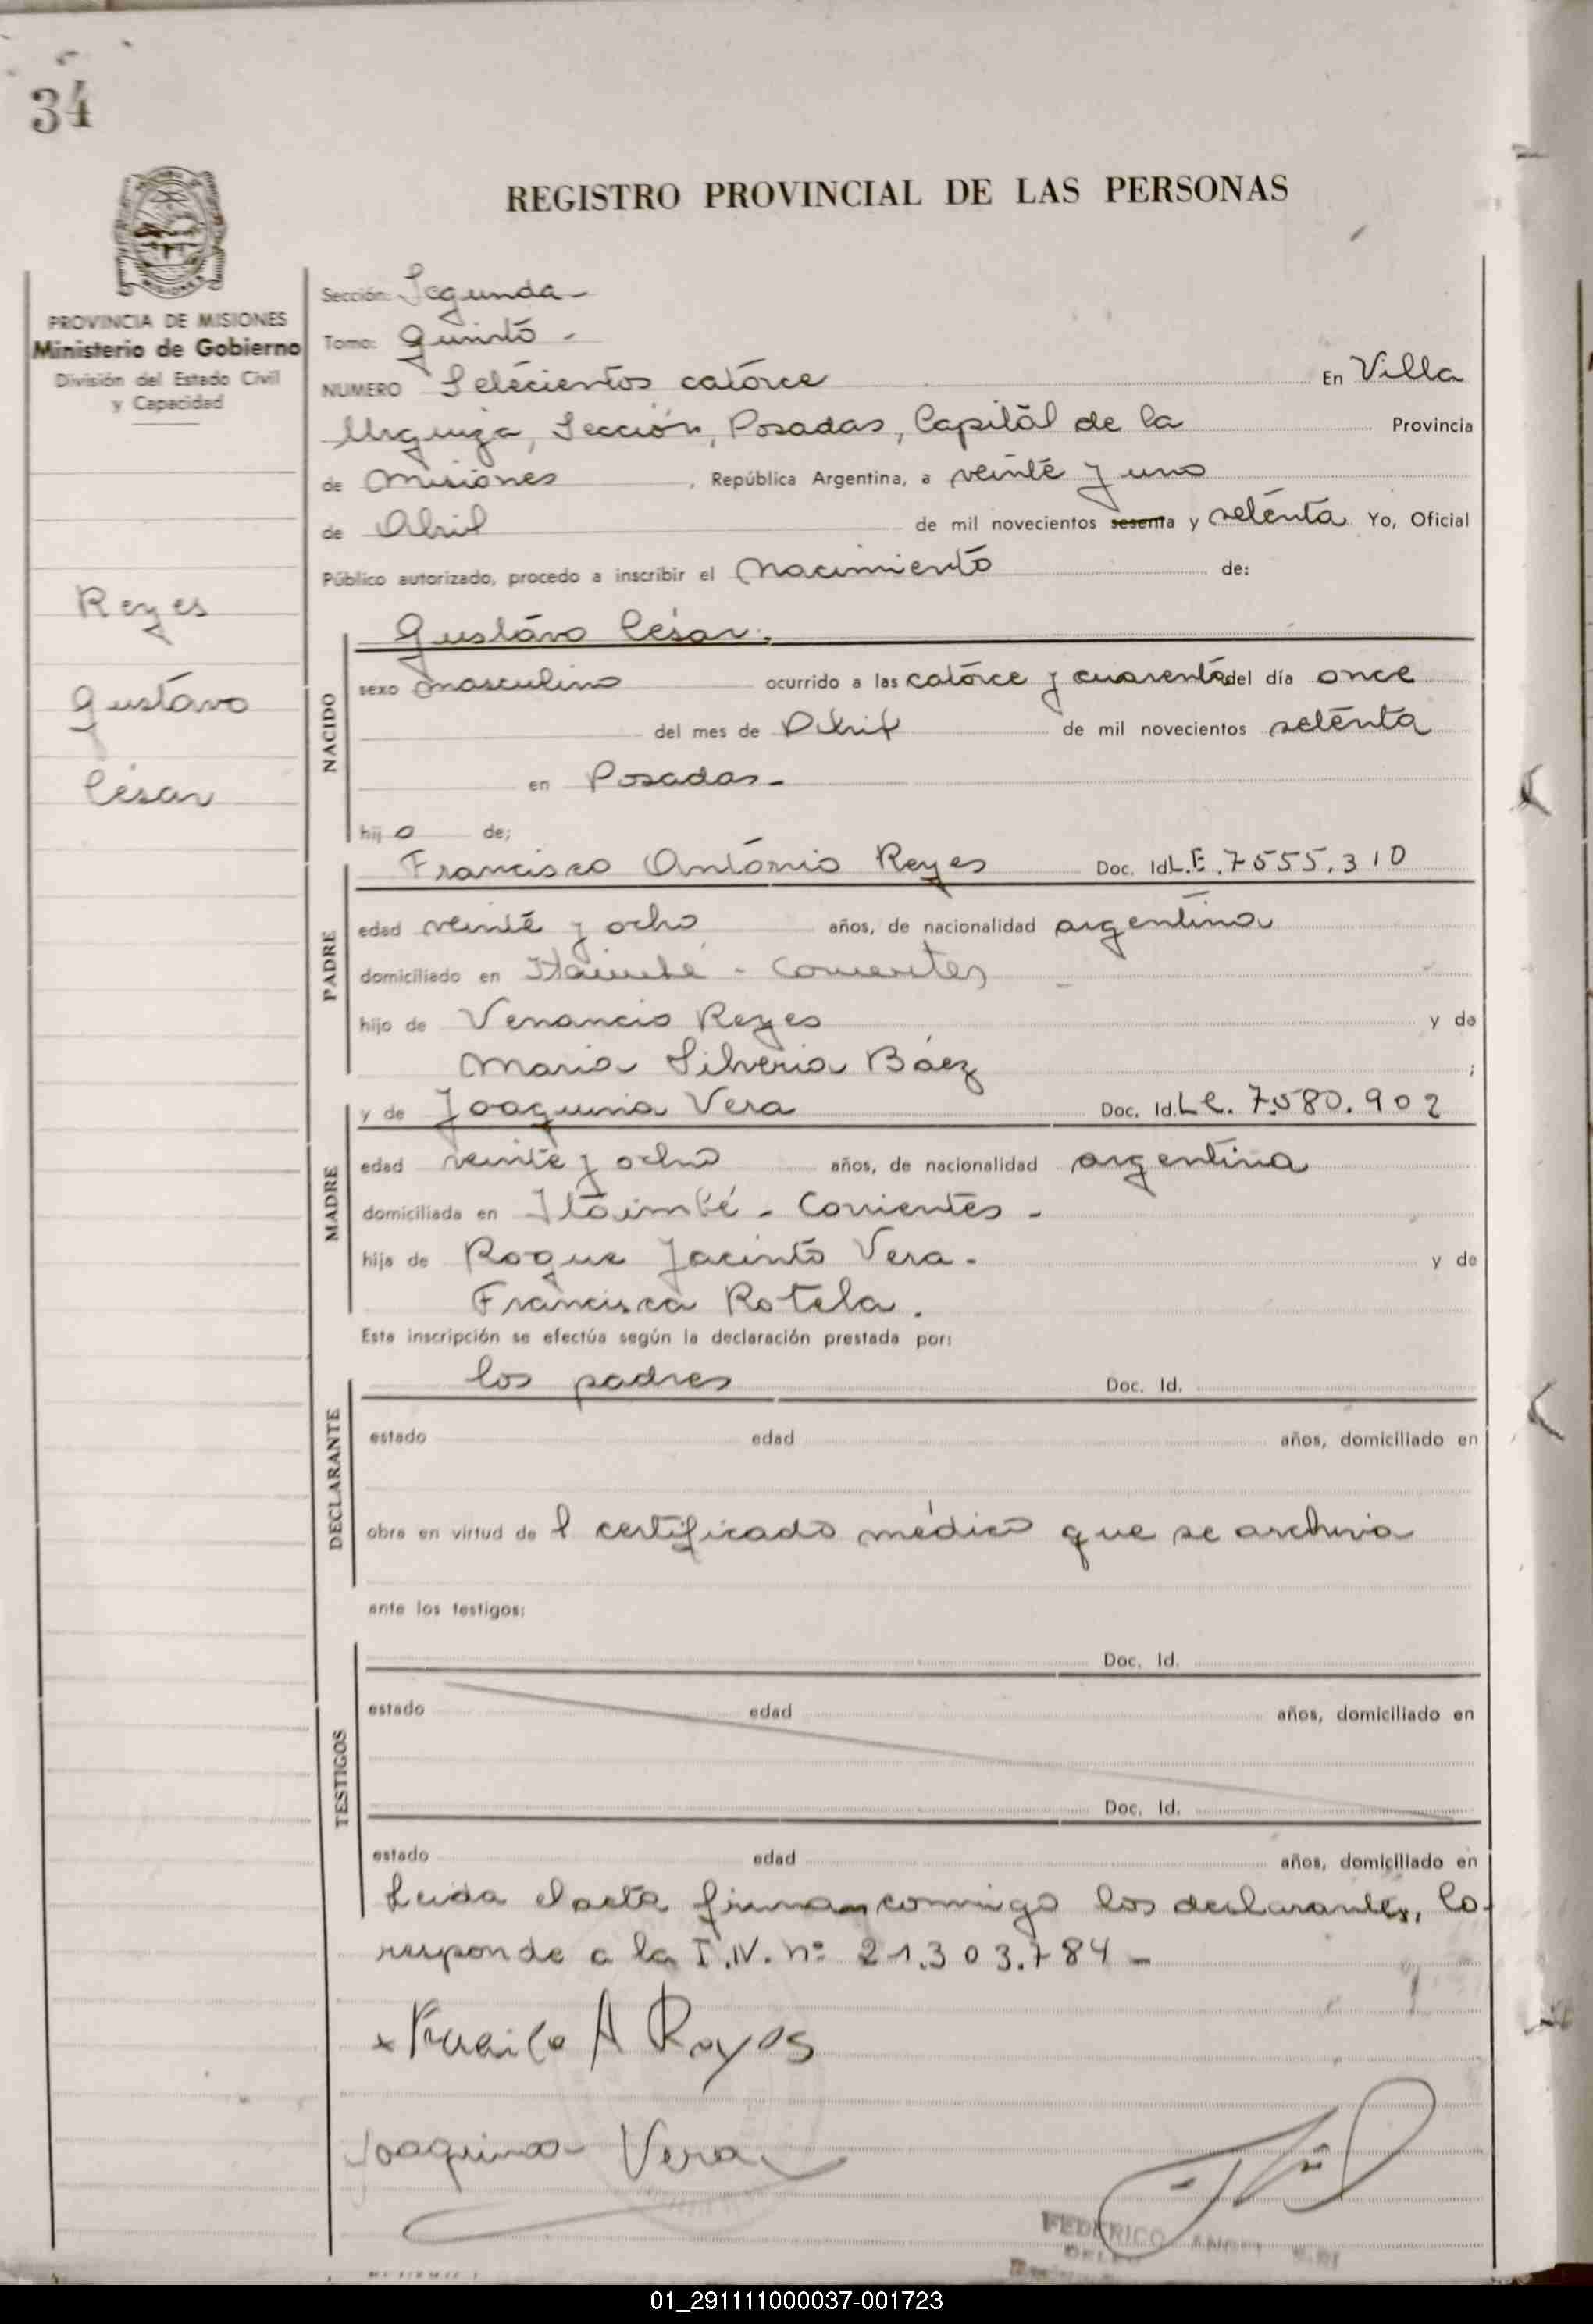 34
REGISTRO PROVINCIAL DE LAS PERSONAS
MISIONES
PROVINCIA DE MISIONES
Ministerio de Gobierno
División del Estado Civil
y Capacidad
Reyes
Gustavo
César
Sección: Segunda-
Tomo: Quinto -
NUMERO Setecientos catorce En Villa
Urquiza, Sección, Posadas, Capital de la Provincia
de Misiones, República Argentina, a veinte y uno
de Abril de mil novecientos sesenta y setenta Yo, Oficial
Público autorizado, procedo a inscribir el nacimiento de:
NACIDO
Gustavo César.
sexo masculino ocurrido a las catorce y cuarenta del día once
del mes de Abril de mil novecientos setenta
en Posadas-
hijo de;
PADRE
Francisco Antonio Reyes Doc. Id L.E. 7555.310
edad veinte y ocho años, de nacionalidad argentina
domiciliado en Itaimbé - Corrientes
hijo de Venancio Reyes y de
Maria Silveria Báez ;
MADRE
y de Joaquina Vera Doc. Id. L.C. 7.580.902
edad veinte y ocho años, de nacionalidad argentina
domiciliada en Itaimbé - Corrientes -
hija de Roque Jacinto Vera - y de
Francisca Rotela.
Esta inscripción se efectúa según la declaración prestada por:
DECLARANTE
los padres Doc. Id.
estado edad años, domiciliado en
obra en virtud del certificado médico que se archiva
ante los testigos:
TESTIGOS
Doc. Id.
estado edad años, domiciliado en
Doc. Id.
estado edad años, domiciliado en
Leida el acta firman conmigo los declarantes, Co-
responde a la I.N. nº 21.303.784 -
x A Reyes
Joaquina Vera
FEDERICO ANGEL
01_291111000037-001723